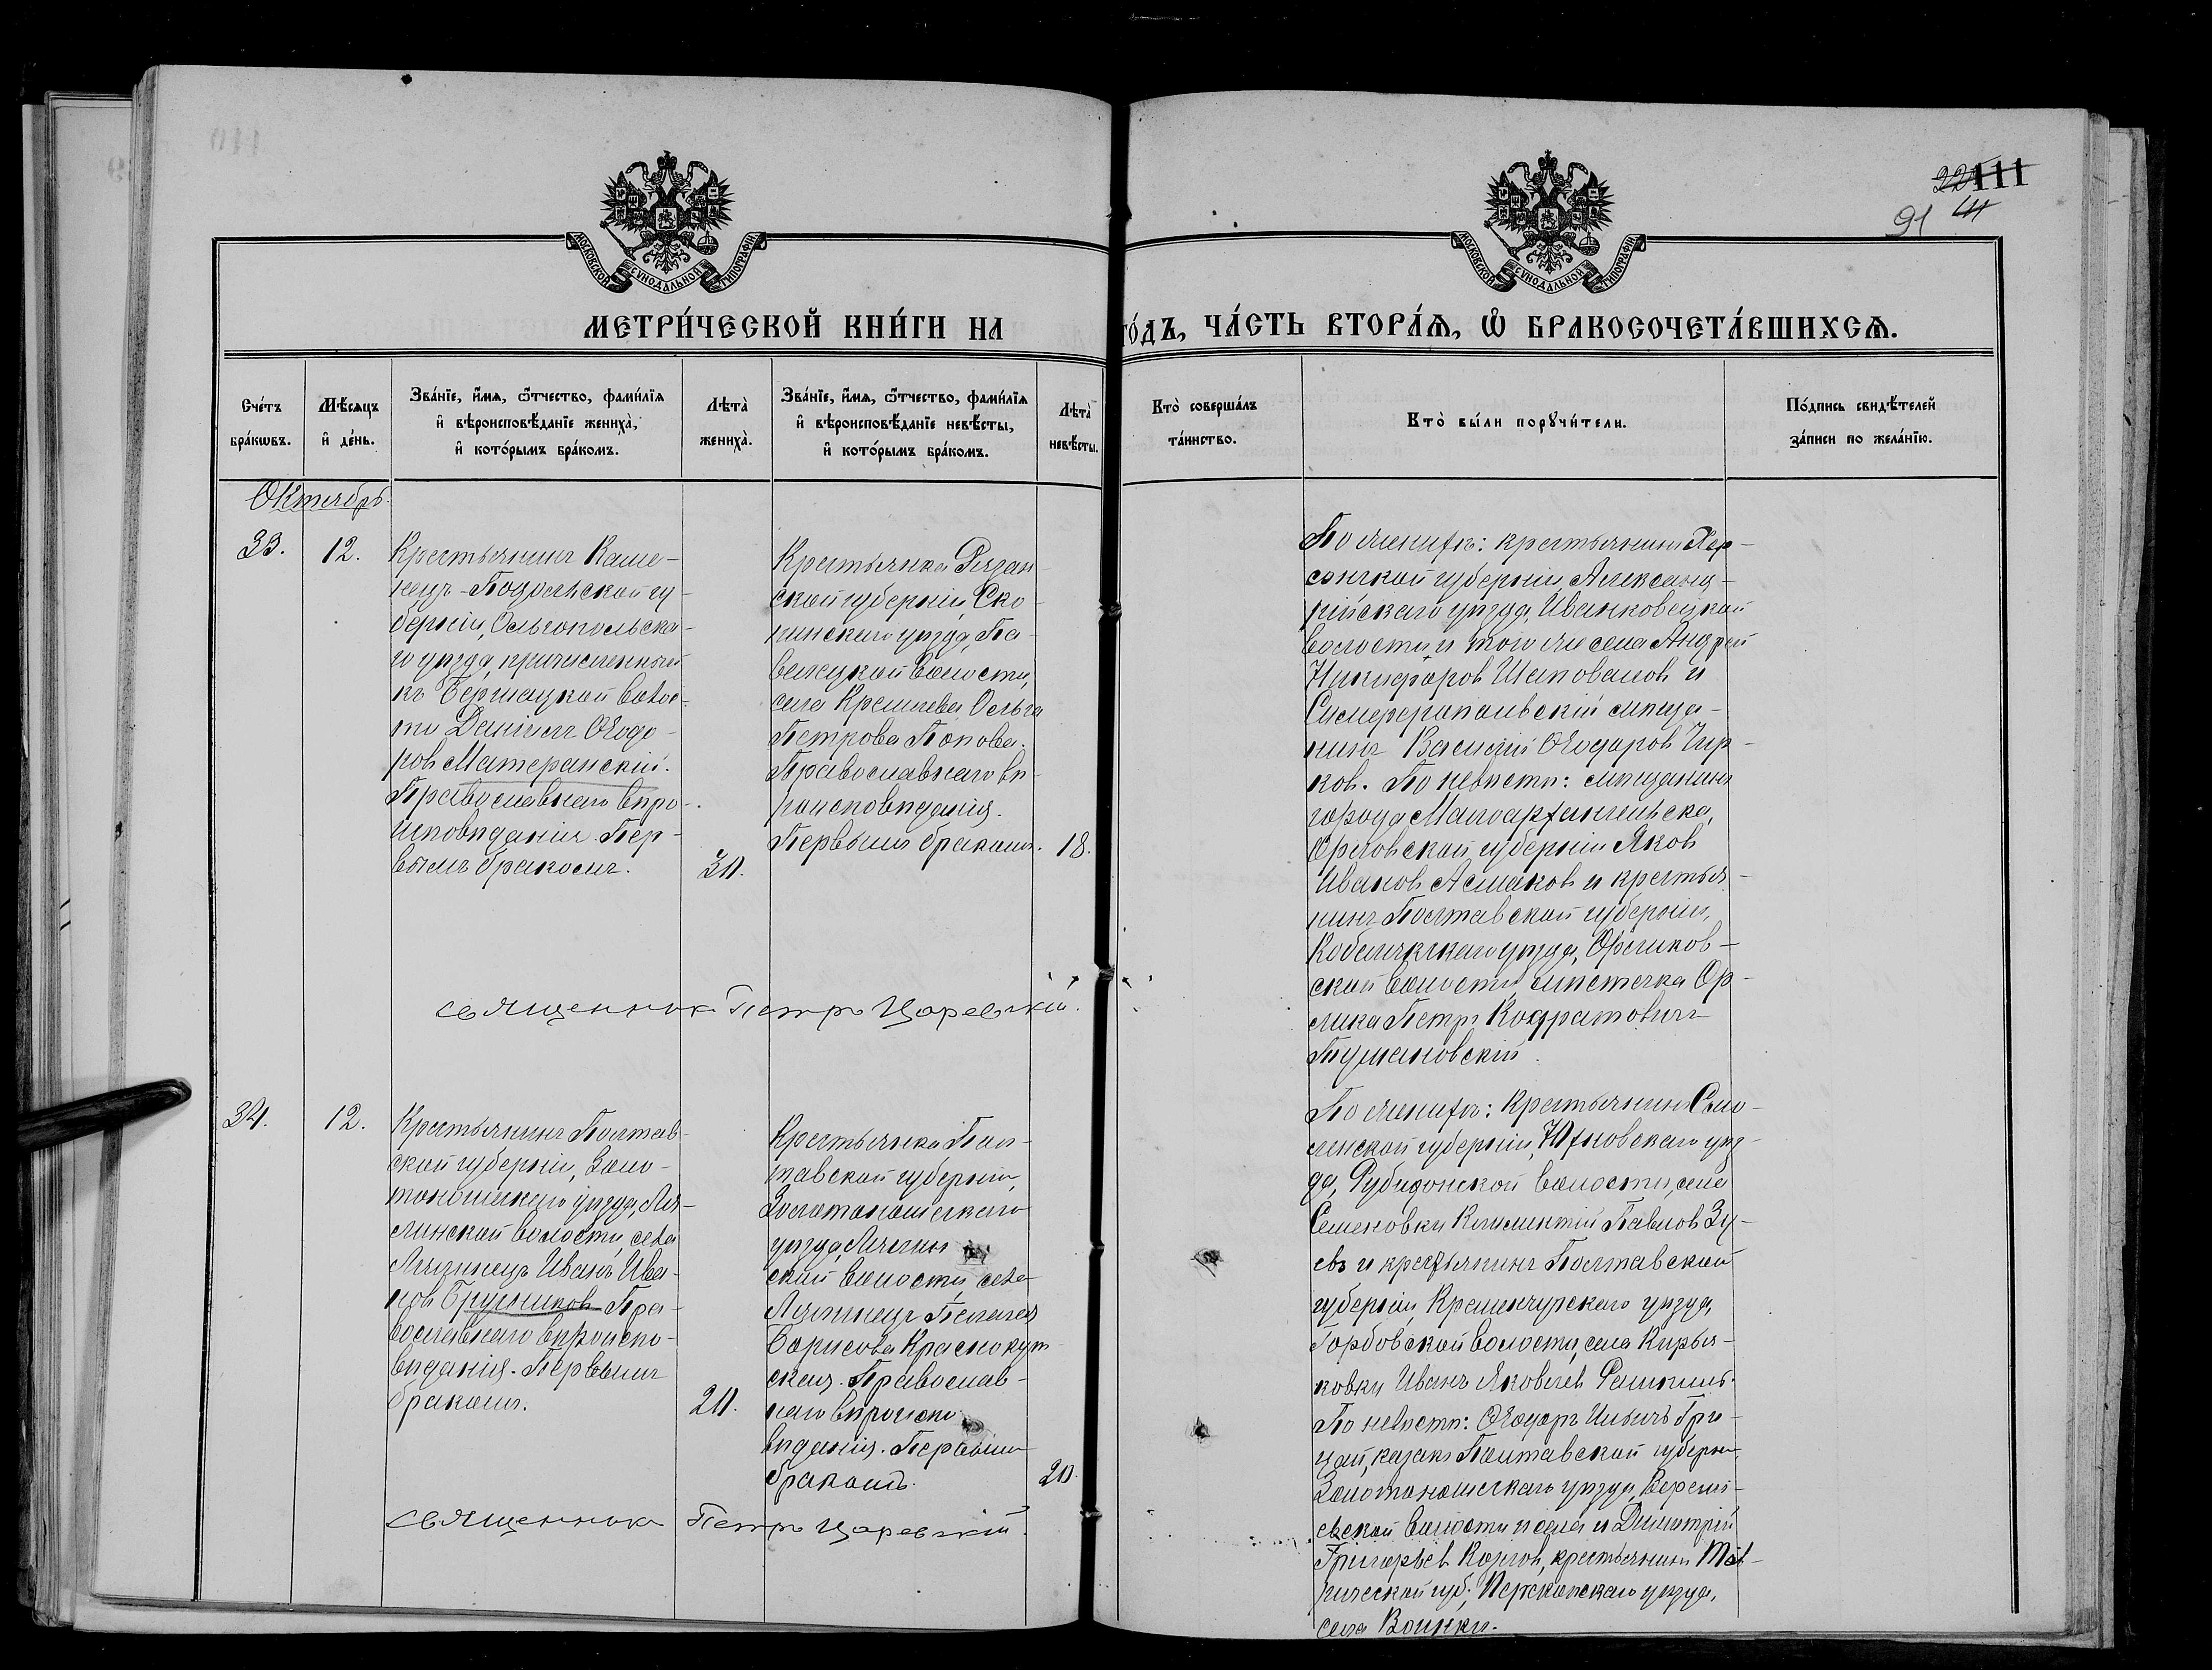 22 111
91 111
МОСКОВСКОЙ СѴНОДАЛЬНОЙ ТИПОГРАФІИ
МОСКОВСКОЙ СѴНОДАЛЬНОЙ ТИПОГРАФІИ
МЕТРИ́ЧЕСКОЙ КНИ́ГИ НА ГО́ДЪ, ЧА́СТЬ ВТОРА́Ѧ, Ѽ БРАКОСОЧЕТА́ВШИХСѦ.
Сче́тъ
бра́кѡвъ.
Мѣ́сѧцъ
и҆ де́нь.
Зва́нїе, и҆́мѧ, ѻ҆́тчество, фами́лїѧ
и҆ вѣроисповѣ́данїе жениха̀,
и҆ кото́рымъ бра́комъ.
Лѣта̀
жениха̀.
Зва́нїе, и҆́мѧ, ѻ҆́тчество, фами́лїѧ
и҆ вѣроисповѣ́данїе невѣ́сты,
и҆ кото́рымъ бра́комъ.
Лѣта̀
невѣ́сты.
Кто̀ соверша́лъ
та́инство.
Кто̀ бы́ли порꙋчи́тели.
По́дпись свидѣ́телей
за́писи по жела́нїю.
Октябрь.
33.
12.
Крестьянинъ Каме-
нецъ-Подольской гу-
берніи, Ольгопольска-
го уѣзда, причисленный
къ Бершадской волос-
ти Даніилъ Ѳеодо-
ровъ Матеранскій.
Православнаго вѣро-
исповѣданія. Пер-
вымъ бракомъ.
30.
Крестьянка Рязан-
ской губерніи, Ско-
пинскаго уѣзда, Па-
велецкой волости,
села Кремлева Ольга
Петрова Попова.
Православнаго вѣ-
роисповѣданія.
Первымъ бракомъ.
18.
По женихѣ: крестьянинъ Хер-
сонской губерніи Александ-
рійскаго уѣзда, Иванковецкой
волости и того же села Андрей
Никифоровъ Шаповаловъ и
Симферопольскій мѣща-
нинъ Василій Ѳеодоровъ Чир-
ковъ. По невѣстѣ: мѣщанинъ
города Малоархангельска,
Орловской губерніи Яковъ
Ивановъ Асмаковъ и крестья-
нинъ Полтавской губерніи,
Кобелякскаго уѣзда, Орликов-
ской волости, мѣстечка Ор-
лика Петръ Кодратовичъ
Тумановскій.
священникъ Петръ Царевскій.
34.
12.
Крестьянинъ Полтав-
ской губерніи, Золо-
тоношскаго уѣзда, Ля-
линской волости, села
Лящинецъ Иванъ Ива-
новъ Брусниковъ. Пра-
вославнаго вѣроиспо-
вѣданія. Первымъ
бракомъ.
20.
Крестьянка Пол-
тавской губерніи,
Золотоношскаго
уѣзда,
ской волости, села
Лящинецъ Пелагея
Борисова Краснокут-
ская. Православ-
наго вѣроиспо-
вѣданія. Первымъ
бракомъ.
20.
По женихѣ: Крестьянинъ Смо-
ленской губерніи, Юхновскаго уѣз-
да, Рубихонской волости, села
Семеновки Климентій Павловъ Зу-
евъ и крестьянинъ Полтавской
губерніи, Кременчугскаго уѣзда,
Горбовской волости, села Кирья-
ковки Иванъ Яковлевъ
По невѣстѣ: Ѳеодоръ Ильичъ Гри-
цай, казакъ Полтавской губерн.
Золотоношскаго уѣзда, Вереми-
евской волости и села и Димитрій
Григорьевъ Козловъ, крестьянинъ Тав-
рической губ., Перекопскаго уѣзда,
села Воинки.
священникъ Петръ Царевскій.